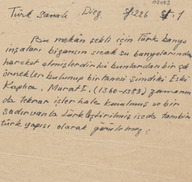 Türk Sanatı Diez Sf 226 Sf. 1
Bu mekân şekli için Türk banyo
inşaları bizansın sıcak su banyolarından
hareket etmişlerdir ki bunlardan bir çok
örnekler bulunup bir tanesi şimdiki Eski
Kaplıca. Murat I. (1360-1389) zamanın
da tekrar işler hale konulmuş ve bir
şadırvanla Türkleştirilmiş isede tam bir
türk yapısı olarak görülmez;